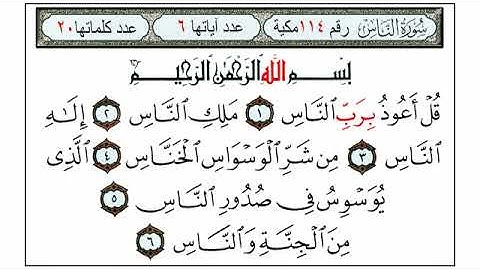 سُورَةُ النَّاسِ رقم ١١٤ مكية عدد آياتها ٦ عدد كلماتها ٢٠
بِسْمِ اللَّهِ الرَّحْمَٰنِ الرَّحِيمِ
قُلْ أَعُوذُ بِرَبِّ النَّاسِ ١ مَلِكِ النَّاسِ ٢ إِلَٰهِ
النَّاسِ ٣ مِن شَرِّ الْوَسْوَاسِ الْخَنَّاسِ ٤ الَّذِي
يُوَسْوِسُ فِي صُدُورِ النَّاسِ ٥
مِنَ الْجِنَّةِ وَالنَّاسِ ٦